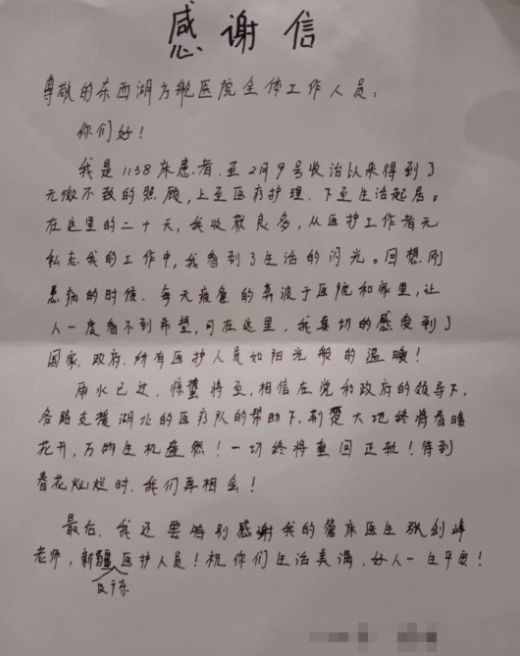 感谢信
尊敬的东西湖方舱医院全体工作人员：
你们好！
我是1138床患者，至2月9号收治以来得到了
无微不致的照顾，上至医疗护理、下至生活起居。
在这里的二十天，我收获良多，从医护工作者无
私忘我的工作中，我看到了生活的闪光。回想刚
患病的时候，每天疲惫的奔波于医院和家里，让
人一度看不到希望，可在这里，我真切的感受到了
国家、政府、所有医护人员如阳光般的温暖！
雨水已过，惊蛰将至，相信在党和政府的领导下，
各路支援湖北的医疗队的帮助下，荆楚大地终将春暖
花开，万物生机盎然！一切终将重回正轨！待到
春花灿烂时，我们再相会！
最后，我还要特别感谢我的管床医生张剑锋
老师，新疆医护人员！祝你们生活美满，好人一生平安！
及广东